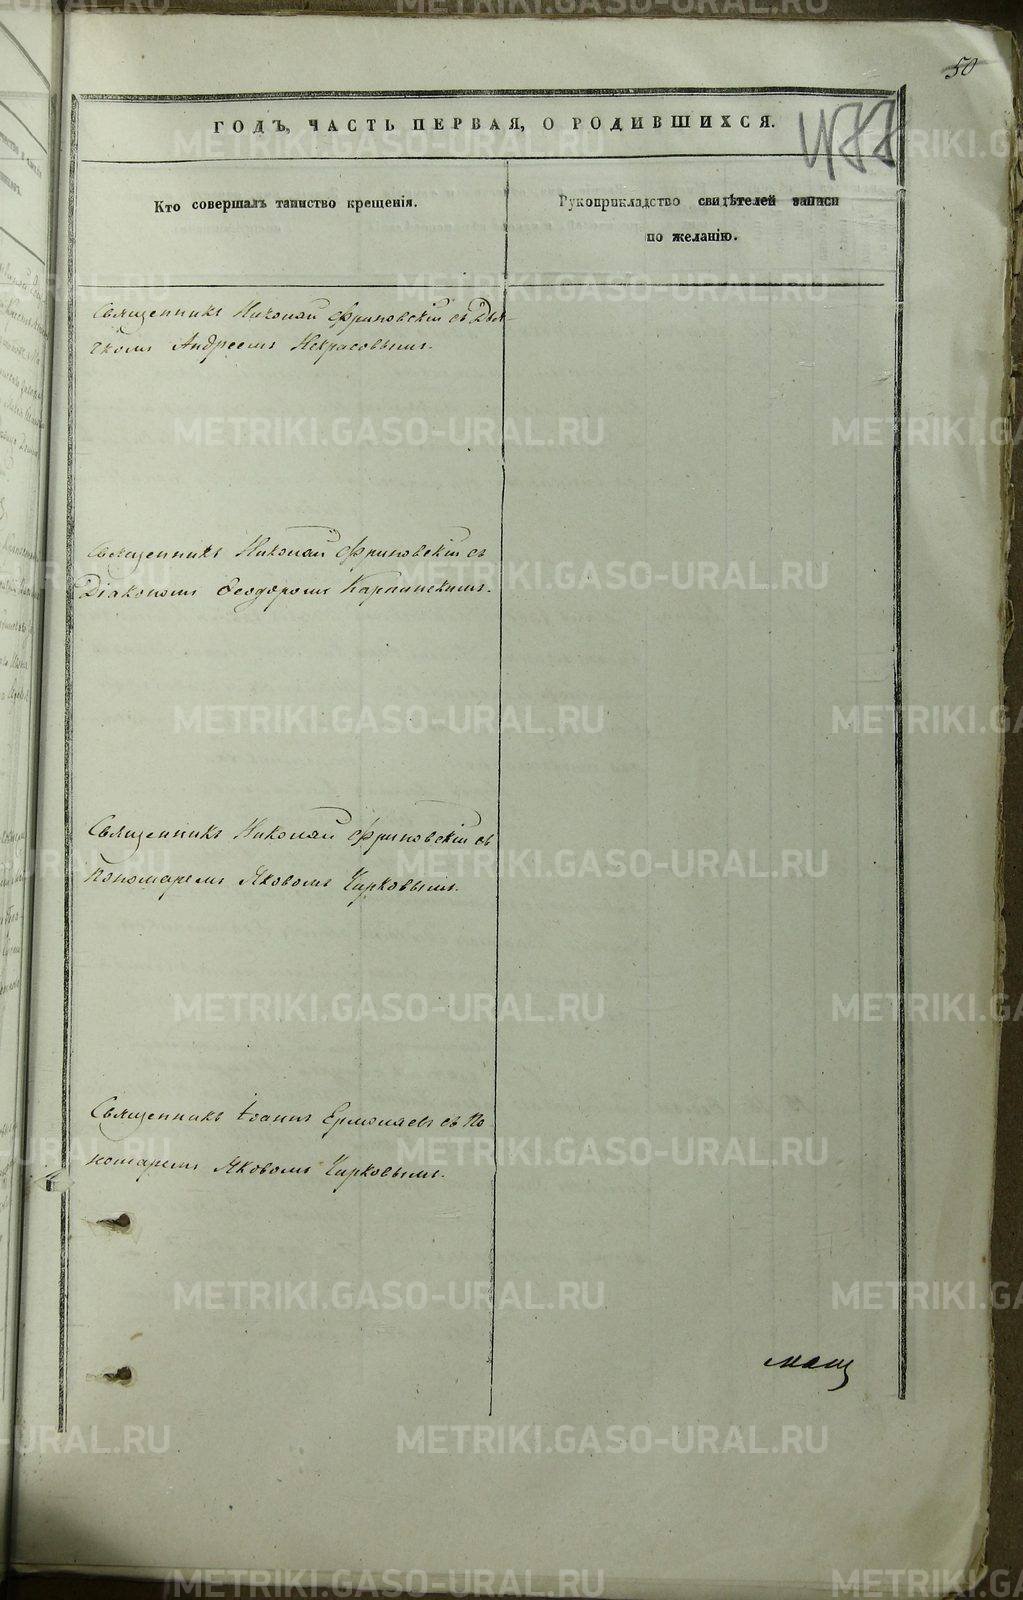 50
477
ГОДЪ, ЧАСТЬ ПЕРВАЯ, О РОДИВШИХСЯ.
Кто совершалъ таинство крещенія.
Рукоприкладство свидѣтелей записи
по желанію.
Священникъ Николай Фриновскій съ Дья-
чкомъ Андреемъ Некрасовымъ.
Священникъ Николай Фриновскій съ
Діакономъ Феодоромъ Карпинскимъ.
Священникъ Николай Фриновскій съ
Пономаремъ Яковомъ Чирковымъ.
Священникъ Іоаннъ Ермолаевъ съ По
номаремъ Яковомъ Чирковымъ.
METRIKI.GASO-URAL.RU